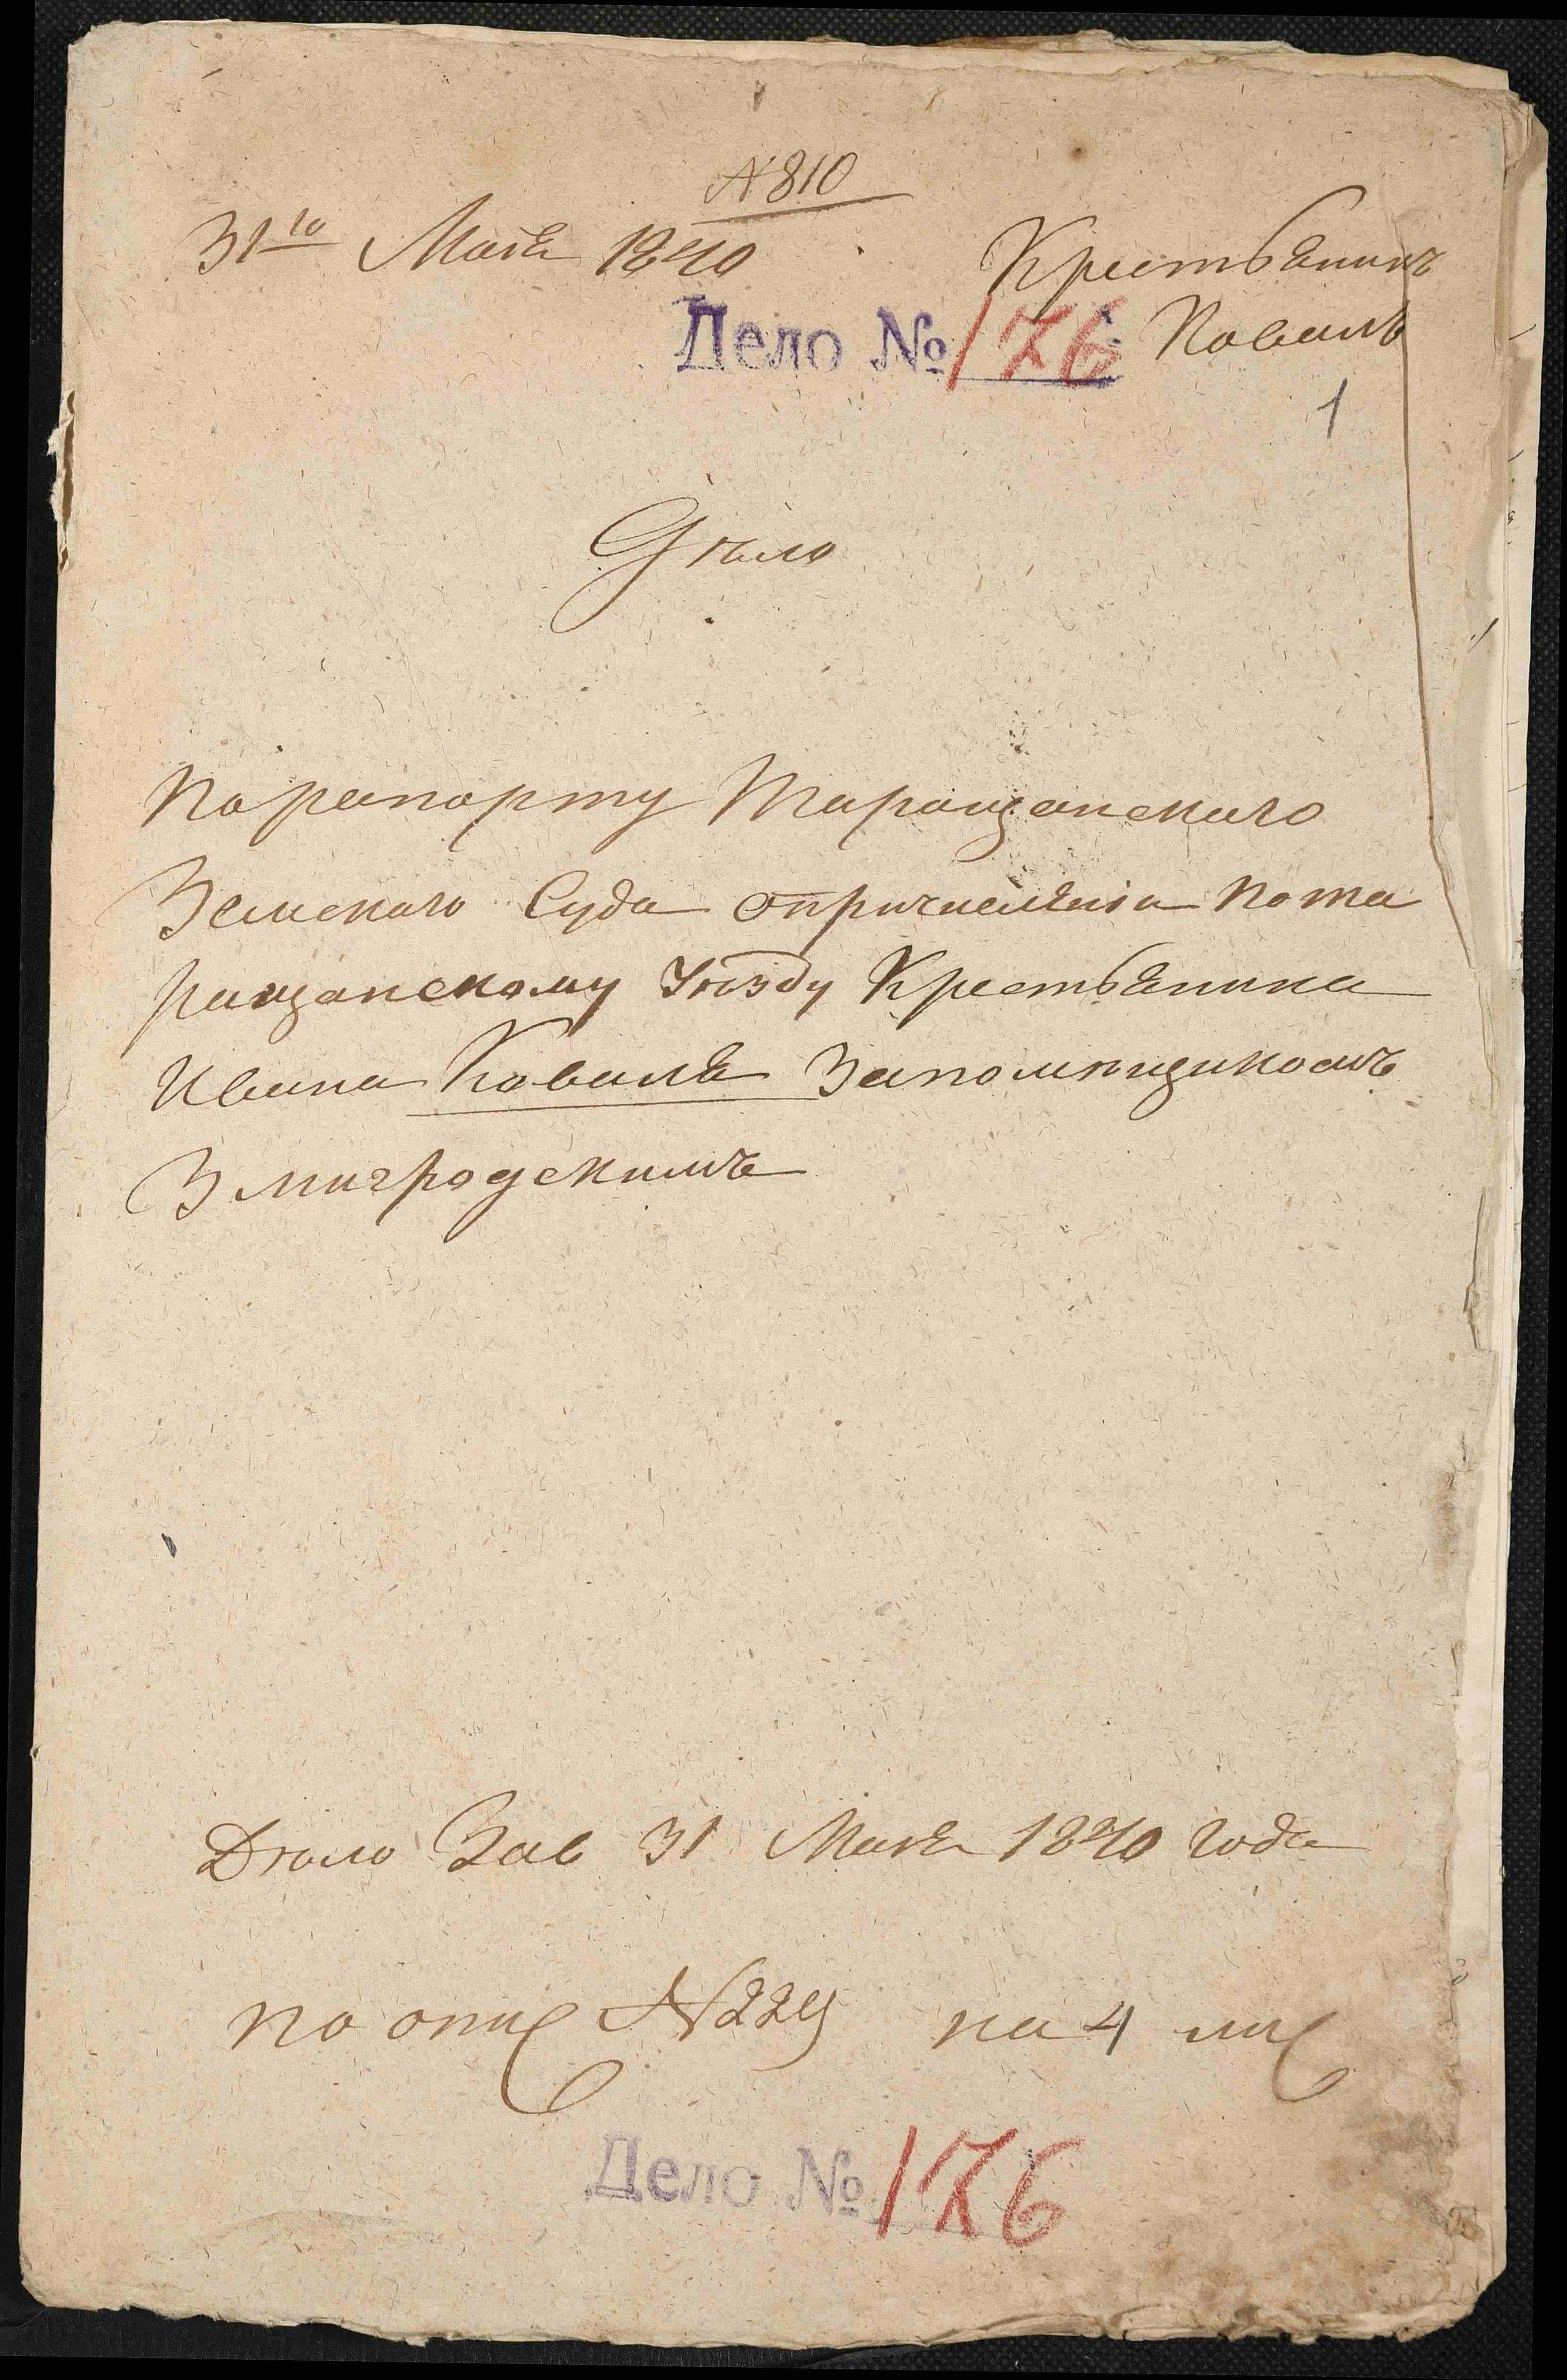 № 810
31го Мая 1840
Крестьянинъ
Дело № 176
Коваль
1
Дѣло
По рапорту Таращанскаго
Земскаго Суда опричисленіи пота
ращанскому Уѣзду Крестьянина
Ивана Коваля Запомѣщикомъ
Змигродскимъ
Дѣло Зав 31 Мая 1840 года
по опис №229 на 4 лис
Дело № 176